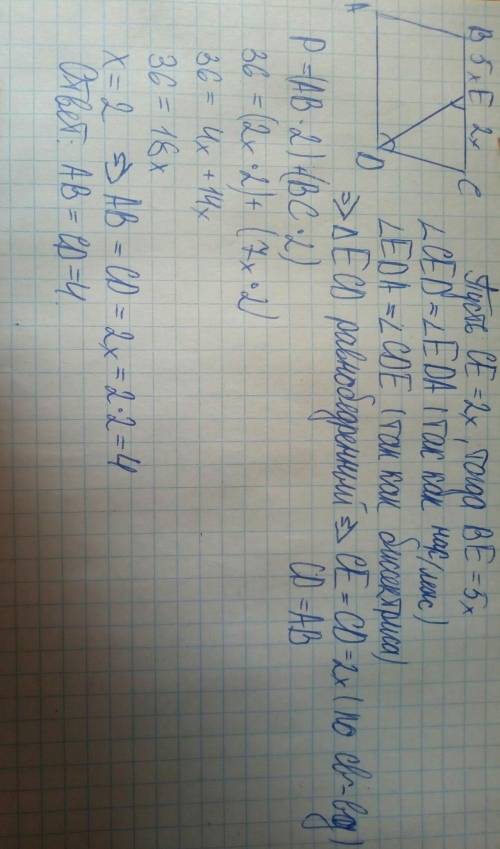 B 5x E 2x C
A D
Пусть CE = 2x, тогда BE = 5x
∠CED = ∠EDA (так как нак/леж)
∠EDA = ∠CDE (так как биссектриса)
=> △ECD равнобедренный => CE = CD = 2x (по св-ву)
CD = AB
P = (AB · 2) + (BC · 2)
36 = (2x · 2) + (7x · 2)
36 = 4x + 14x
36 = 18x
x = 2 => AB = CD = 2x = 2·2 = 4
Ответ: AB = CD = 4.